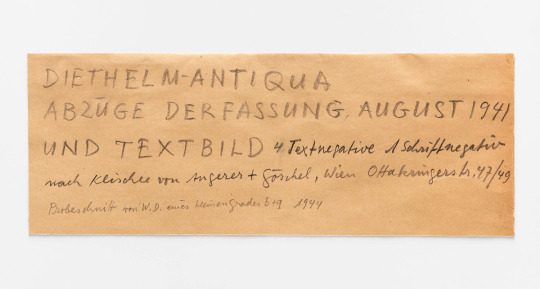 DIETHELM-ANTIQUA
ABZÜGE DER FASSUNG, AUGUST 1941
UND TEXTBILD 4 Textnegative 1 Schriftnegativ
nach Klischee von Angerer + Göschel, Wien Ottakringerstr. 47/49
Probeschnitt von W.D. eines kleinen Grades b+g 1944